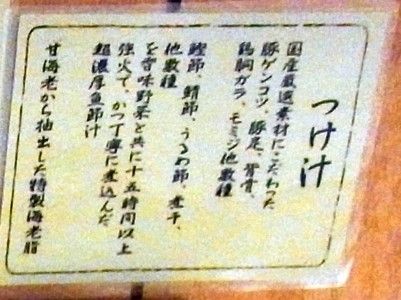 つけ汁
国産厳選素材にこだわった
豚ゲンコツ、豚足、背骨、
鶏胴ガラ、モミジ他数種
鰹節、鯖節、うるめ節、煮干、
他数種
を香味野菜と共に十五時間以上
強火で、かつ丁寧に煮込んだ
超濃厚魚節汁
甘海老から抽出した特製海老脂